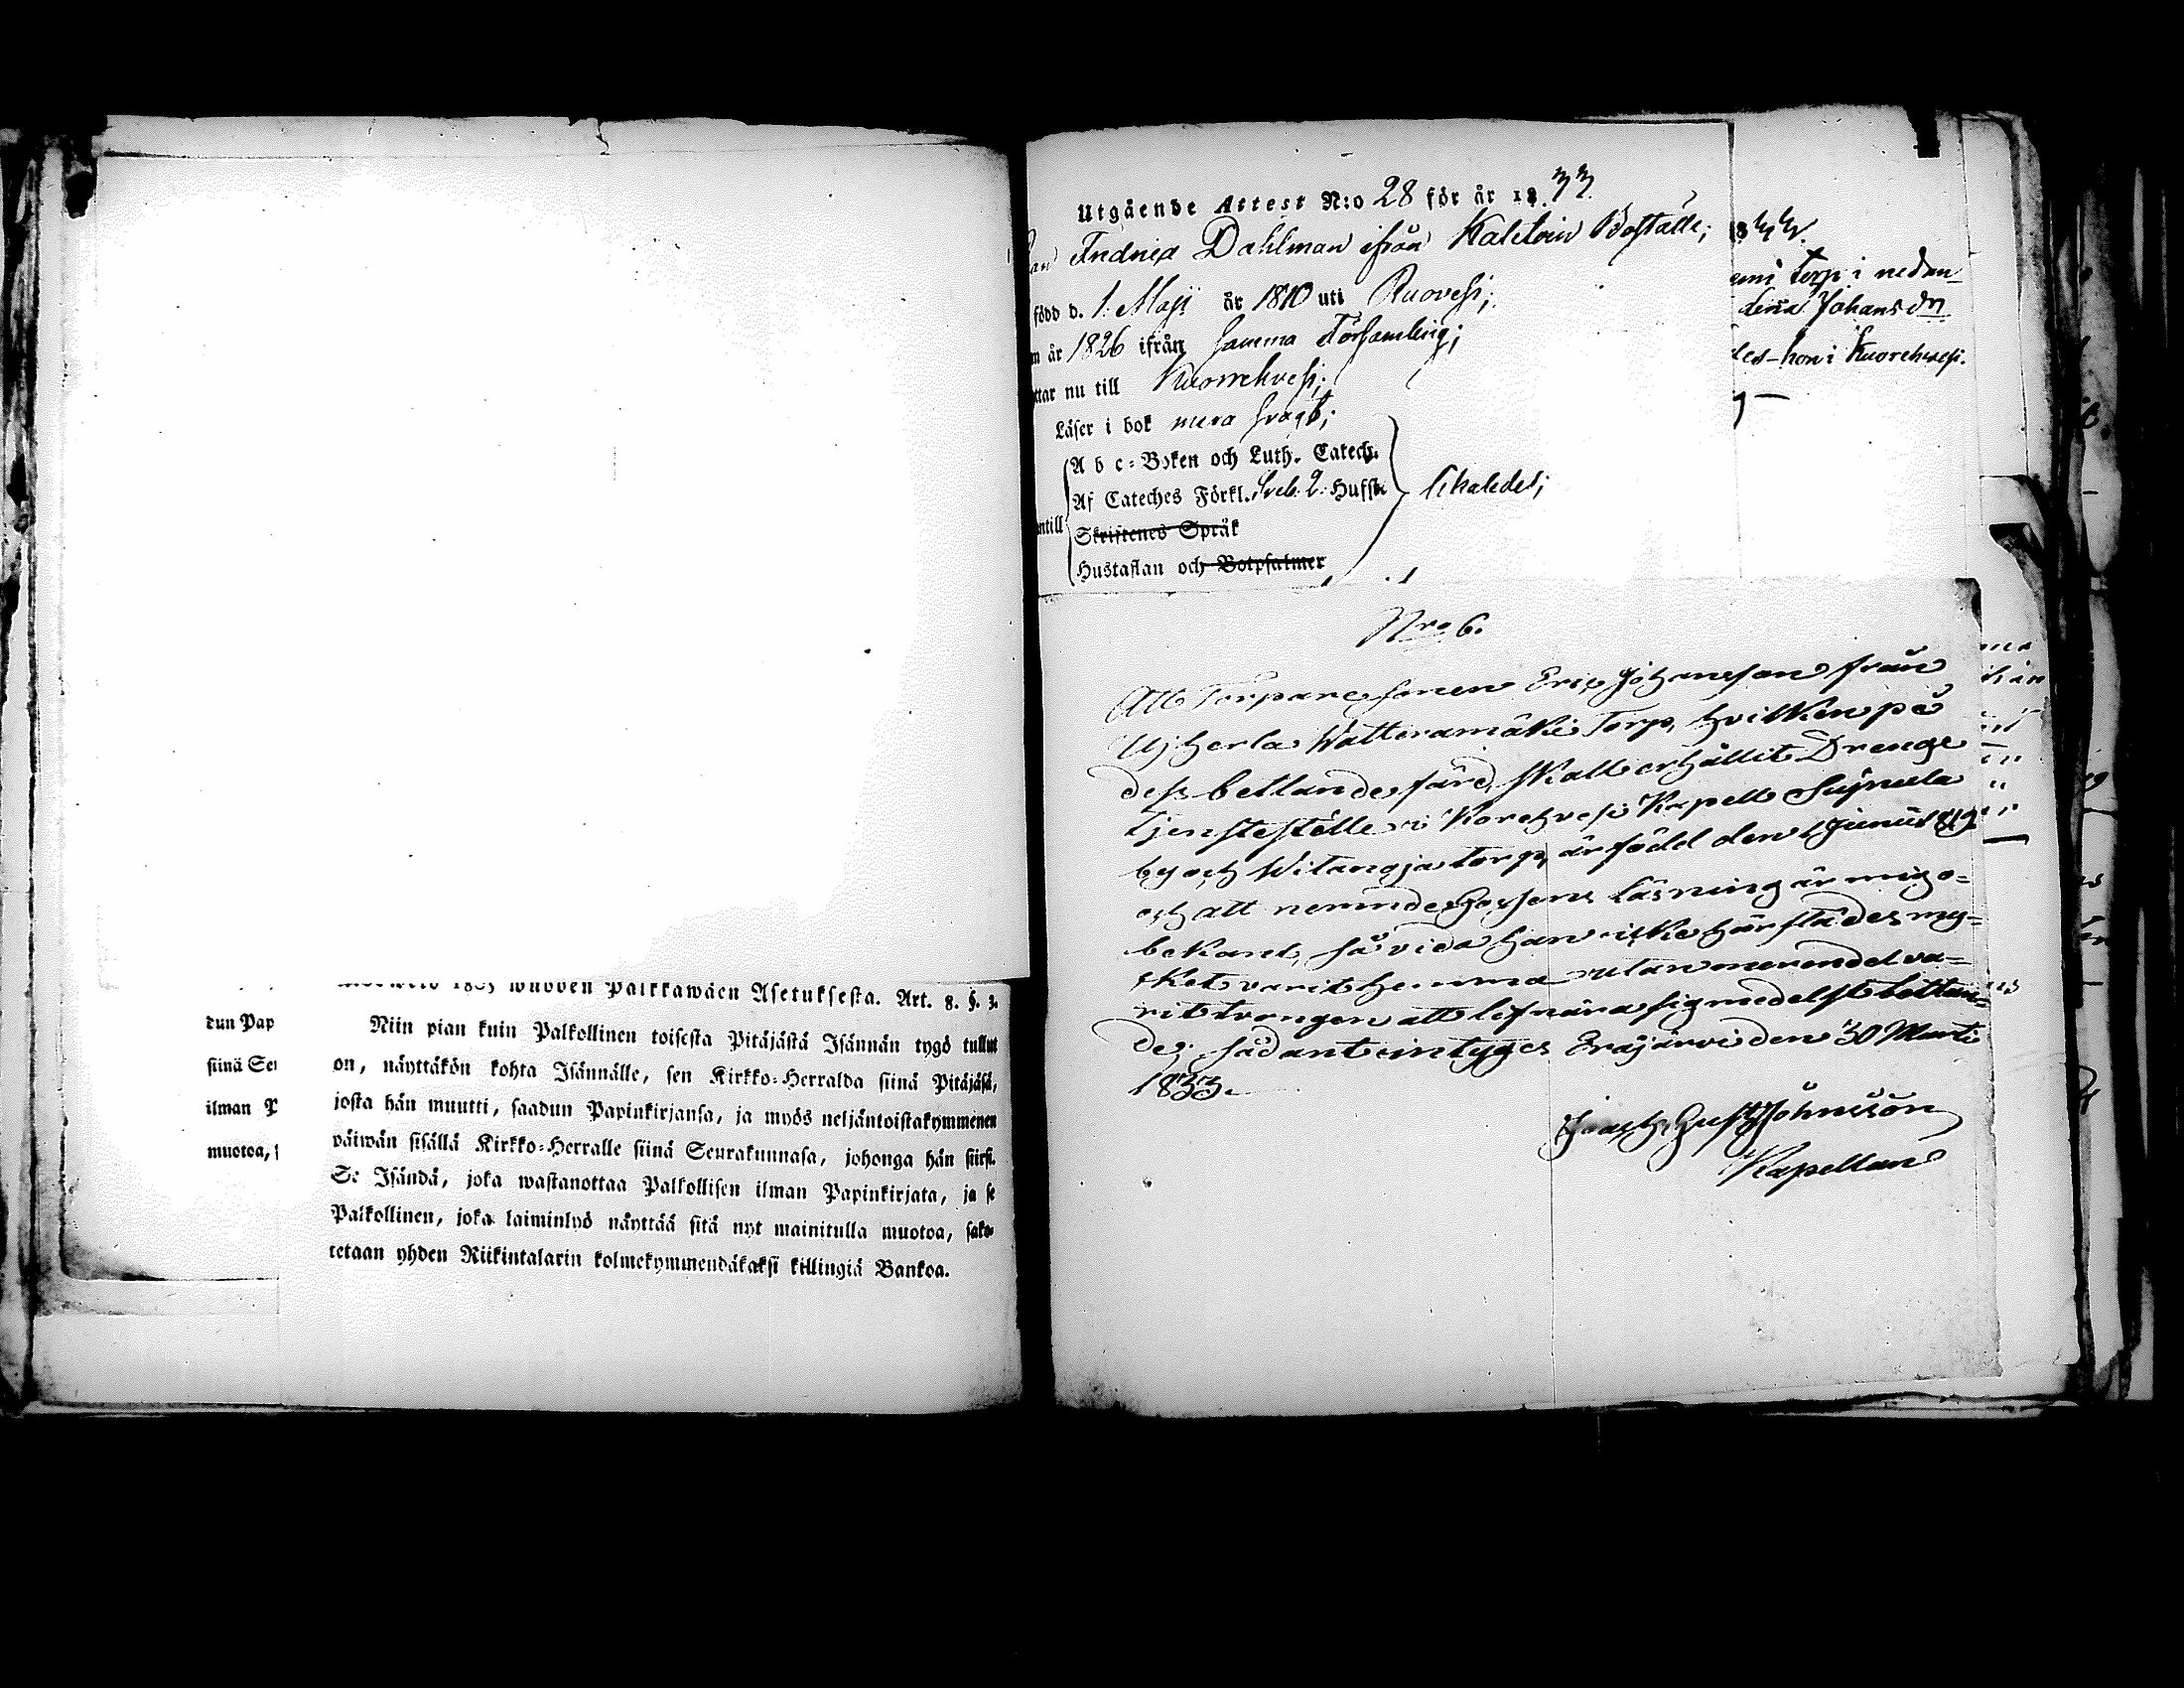 dun Pap
siinä Seu
ilman P
muotoa, s
wuoden Palkkawäen Asetuksesta. Art. 8. §. 3.
Niin pian kuin Palkollinen toisesta Pitäjästä Isännän tygö tullut
on, näyttäkön kohta Isännälle, sen Kirkko-Herralda siinä Pitäjäsä,
josta hän muutti, saadun Papinkirjansa, ja myös neljäntoistakymmenen
päiwän sisällä Kirkko-Herralle siinä Seurakunnasa, johonga hän siirsi.
Se Isändä, joka wastanottaa Palkollisen ilman Papinkirjata, ja se
Palkollinen, joka laiminlyö näyttää sitä nyt mainitulla muotoa, sako-
tetaan yhden Riikintalarin kolmekymmendäkaksi killingiä Bankoa.
Utgående Attest N:o 28 för år 1833.
Dahlman ifrån Boställe;
född d. 1. Maji år 1810 uti Ruovesi;
år 1826 ifrån samma Församling;
ttar nu till Kuorehvesi;
Läser i bok mera svagt;
A b c-Boken och Luth. Catech.
Af Cateches Förkl. Sveb. 2. Hufst.
ntill
Skriftenes Språk
Hustaflan och Botpsalmer
emi Torp i nedan-
dena Johansdr
des-hon i Kuorehvesi.
Nro 6.
Att Torpare sonen Eric Johansson från
Torp, hvilken på
dess bettlande färd, skall erhållit Drenge
tjenstestelle i Korehvesi Kapell
by och Torp, är född den Junii
och att nemnde Gossens läsning är mig o-
bekant, så vida han icke härstädes my-
sket varit hemma utan merendel va-
rit tvongen att lifnära sig medelst bettlan-
de; sådant intyges Eräjärvi den 30 Marti
1833.
Gust. Johnsson
Kapellan